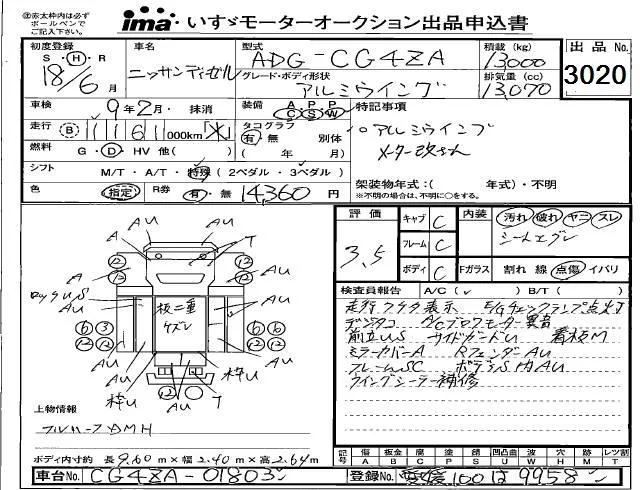 ㊟赤太枠内は必ず
ボールペンで
ご記入下さい。
ima いすゞモーターオークション出品申込書
初度登録 車名 型式 積載(kg) 出品No.
S・H・R 18/6月 ニッサンディーゼル ADG-CG4ZA 13000 3020
グレード・ボディ形状 アルミウイング 排気量(cc) 13,070
車検 9年2月・抹消 装備 A P P C S W 特記事項
走行 B 1161 000km 「メ」 タコグラフ 有・無 別体 アルミウイング
( 年 月) メーター改ざん
燃料 G・D・HV 他( )
シフト M/T・A/T・特殊(2ペダル・3ペダル) 架装物年式:( 年式)・不明
※不明の場合は、不明に○をする。
色 指定 R券 有・無 14,360円
評価 キャブ C 内装 汚れ 破れ ヤニ スレ
3.5 フレーム C シートエグレ
ボディ C Fガラス 割れ 線 点傷 イバリ
検査員報告 A/C(✓) B/T( )
走行フタケタ表示 E/Gチェックランプ点灯
デジタコ A/Cブロアモーター異音
前立US サイドガードU 看板M
ミラーカバーA RフェンダーAU
フレームSC ボデーS内AU
ウイングシーラー補修
AU AU
A T
A AU
ロックUS AU AU
板二重 ケズレ
AU AU
枠U AU T 枠U
AU
上物情報
フルハーフDMH
ボディ内寸約 長9.60m×幅2.40m×高2.64m
記号 傷 板金 腐 塗 錆 凹凸曲 歪 欠 補 レツ割
A B C P S U W H M T
車台No. CG4ZA-01803 登録No. 愛媛100は9958